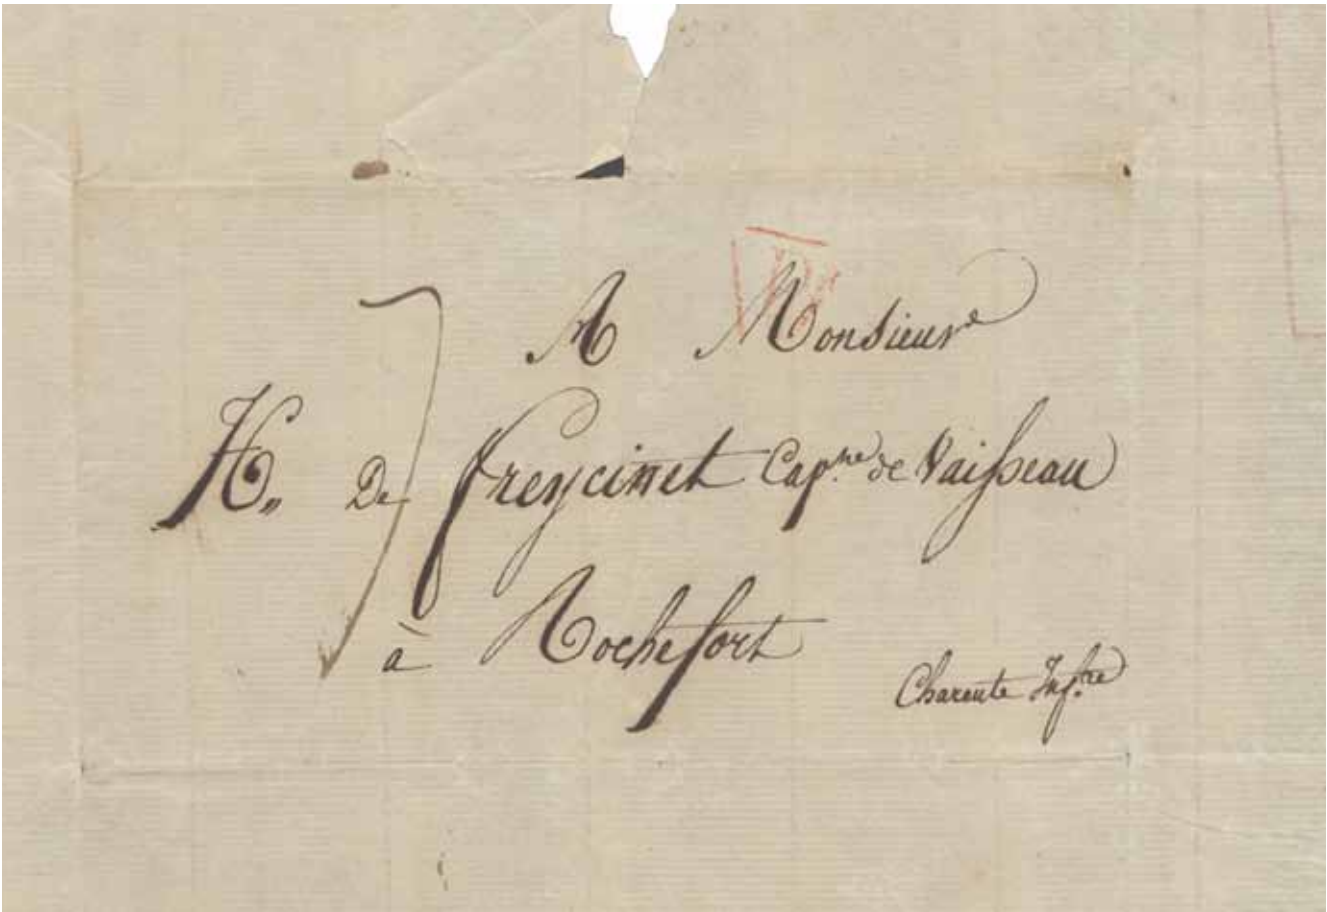 A Monsieur
H. De Freycinet Capne. de Vaisseau
à Rochefort
Charente Infre.